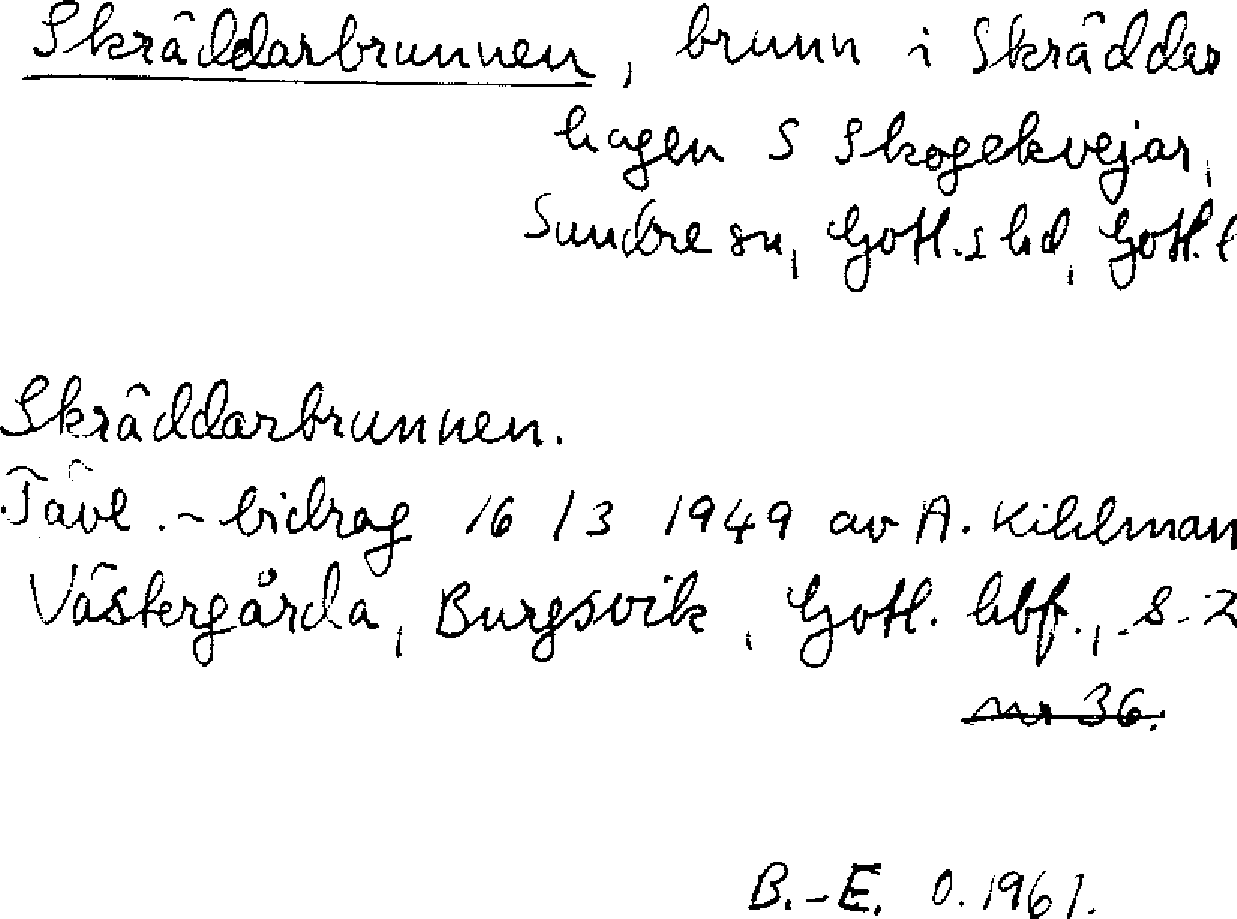 Skräddarbrunnen, brunn i Skräddar
hagen S Skogekvejar,
Sundre sn, Gotl. s hd, Gotl. l
Skräddarbrunnen.
Tävl.-bidrag 16/3 1949 av A. Kihlman
Västergårda, Burgsvik, Gotl. hbf., s. 2
nr 36.
B.-E. O. 1961.